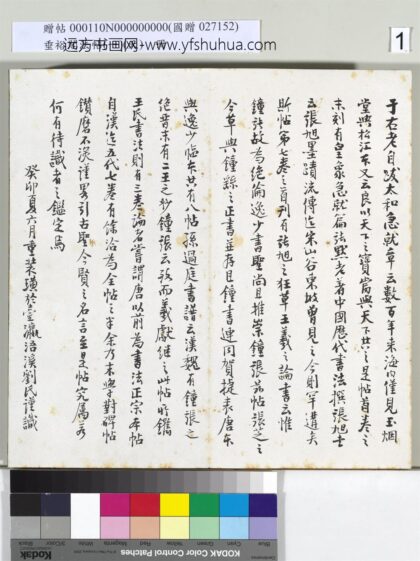 贈帖 000110N000000000(國贈 027152)
远方书画网-www.yfshuhua.com
1
于右老自跋太和急就章云數百年來海內僅見玉烟
堂與松江本又云良以天下之寶當與天下共之是帖首卷之
末刻有皇象急就篇張熙老著中國歷代書法撰張旭士
云張旭墨蹟流傳迄宋山谷東坡曾見之今則罕遘矣
斯帖第七卷之首刊有張旭之狂草王羲之論書云惟
鐘張故為絕倫逸少書聖尚且推崇鐘張若帖張芝之
今草與鐘繇之正書並存且鐘書連同賀捷表唐本
與逸少臨本共有八帖孫過庭書譜云漢魏有鐘張之
絕晉末有二王之妙鐘張云歿而羲獻繼之此帖所鐫
王氏書法則有三卷論者嘗謂唐以前為書法正宗本帖
自漢迄五代七卷有餘洽為全帖之半余乃未學對碑帖
鑽磨不深謹畧引古聖今賢之名言至是帖究屬若
何有待識者之鑑定焉
癸卯夏六月重裝璜於臺瀛浯溪劉民謹識
Blue
Cyan
Green
Yellow
Red
Magenta
White
3/Color
Black
KODAK Color Control Patches
Kodak